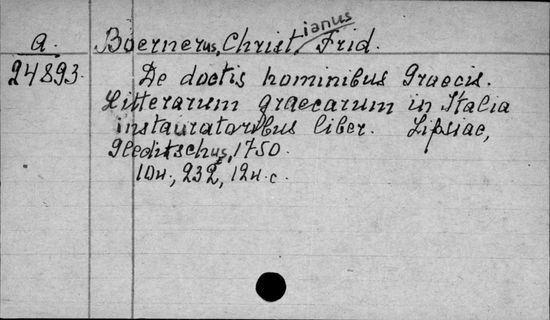 a. Boernerus, Christianus Frid.
24893. De doctis hominibus Graecis.
Litterarum graecarum in Italia
instauratoribus liber. Lipsiae,
Gleditschus, 1750.
10н., 232, 12н. с.